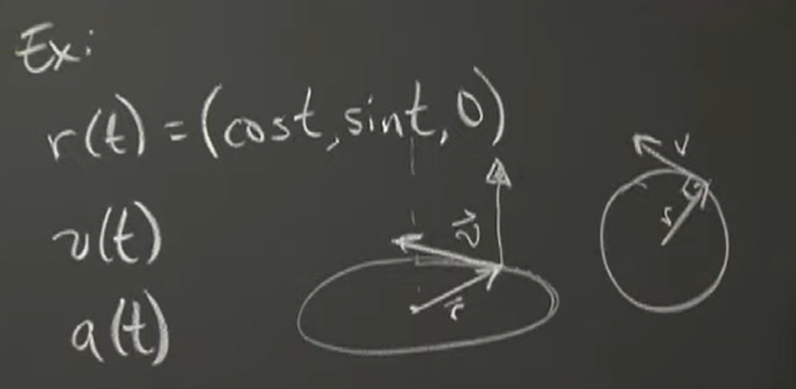 Ex:
r(t) = (cost, sint, 0)
v(t)
a(t)
v⃗
r⃗
v
r